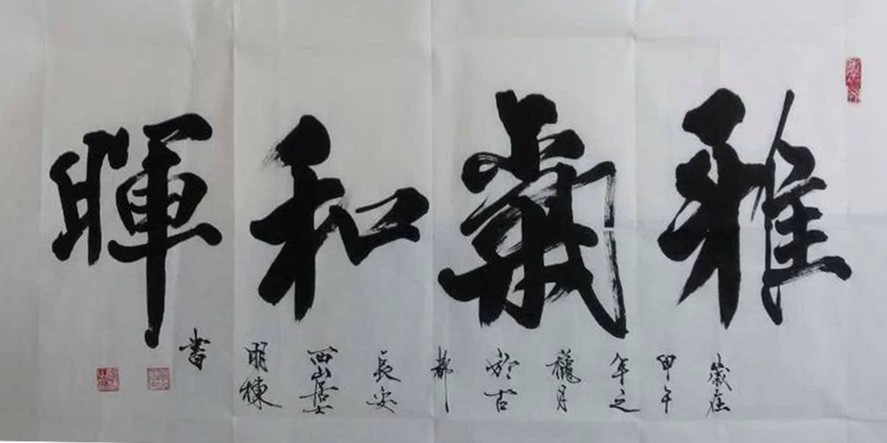 雅氣和暉
歲在
甲午
年之
臘月
於古
都
長安
西山居士
明棟
書